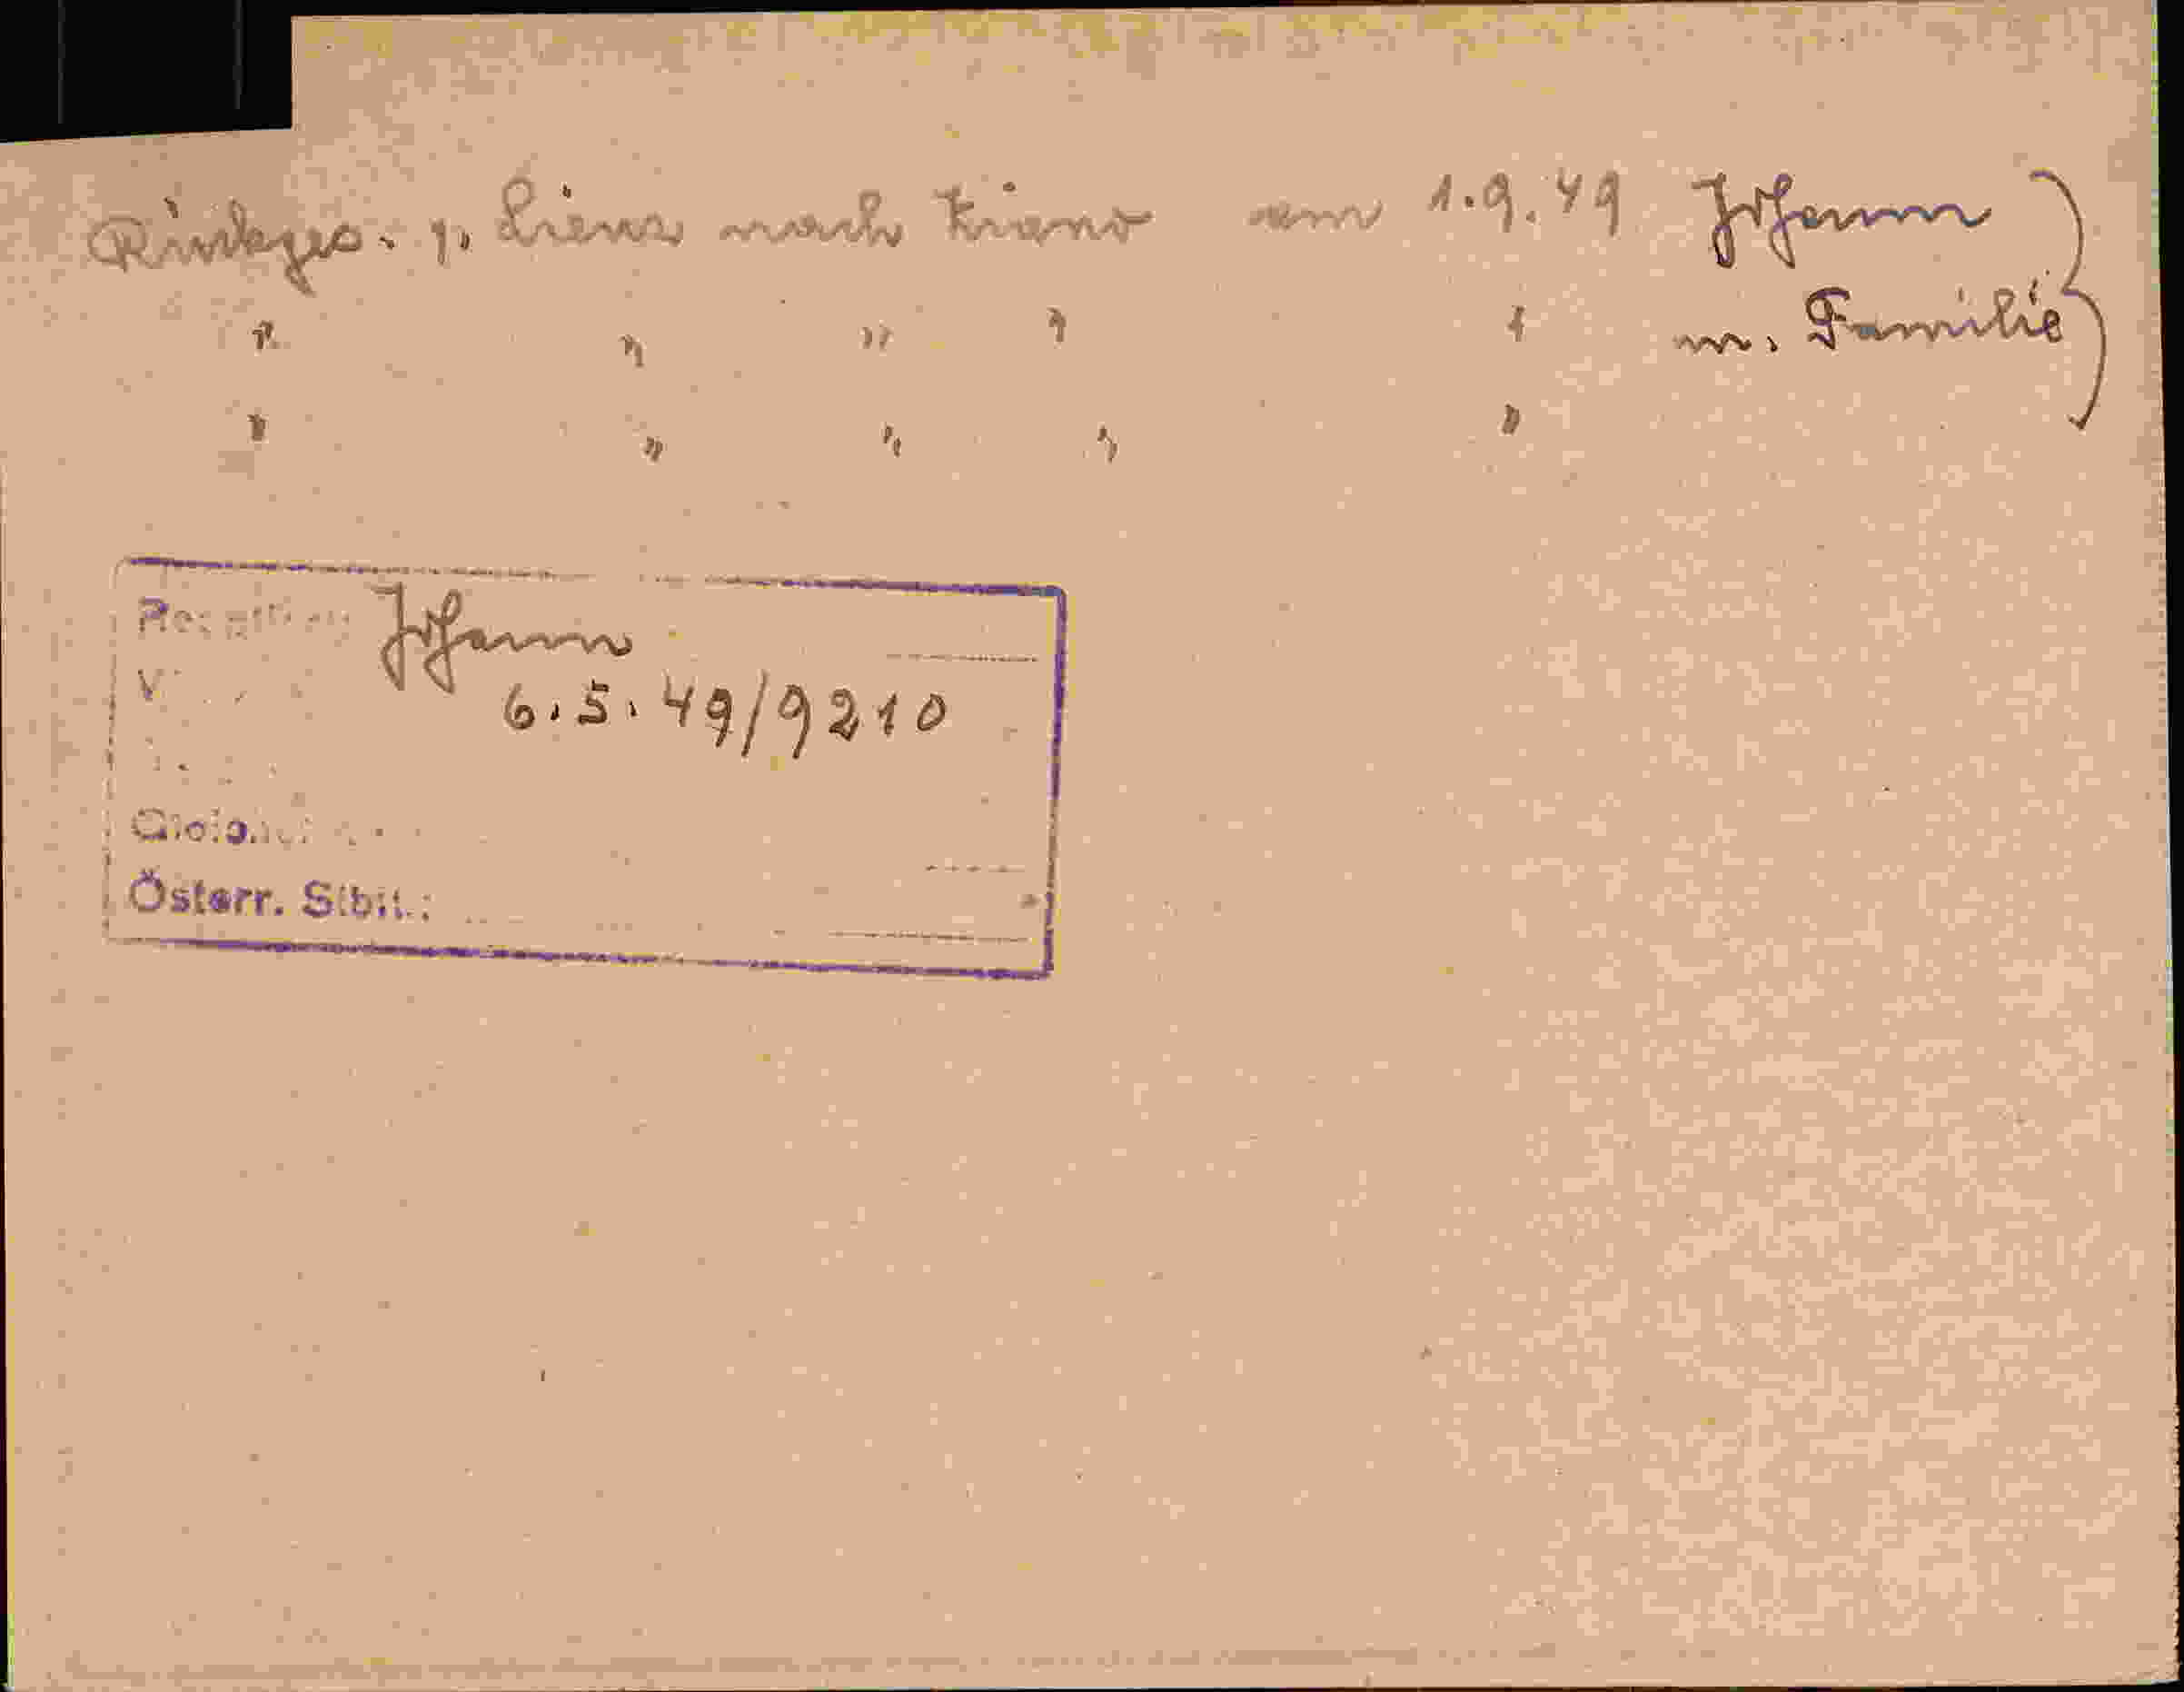 Rückges. v. Lienz nach Triano am 1.9.49 Johann
" " " " " m. Familie
" " " " "
Johann
6.5.49/9210
Österr. Stbü.: